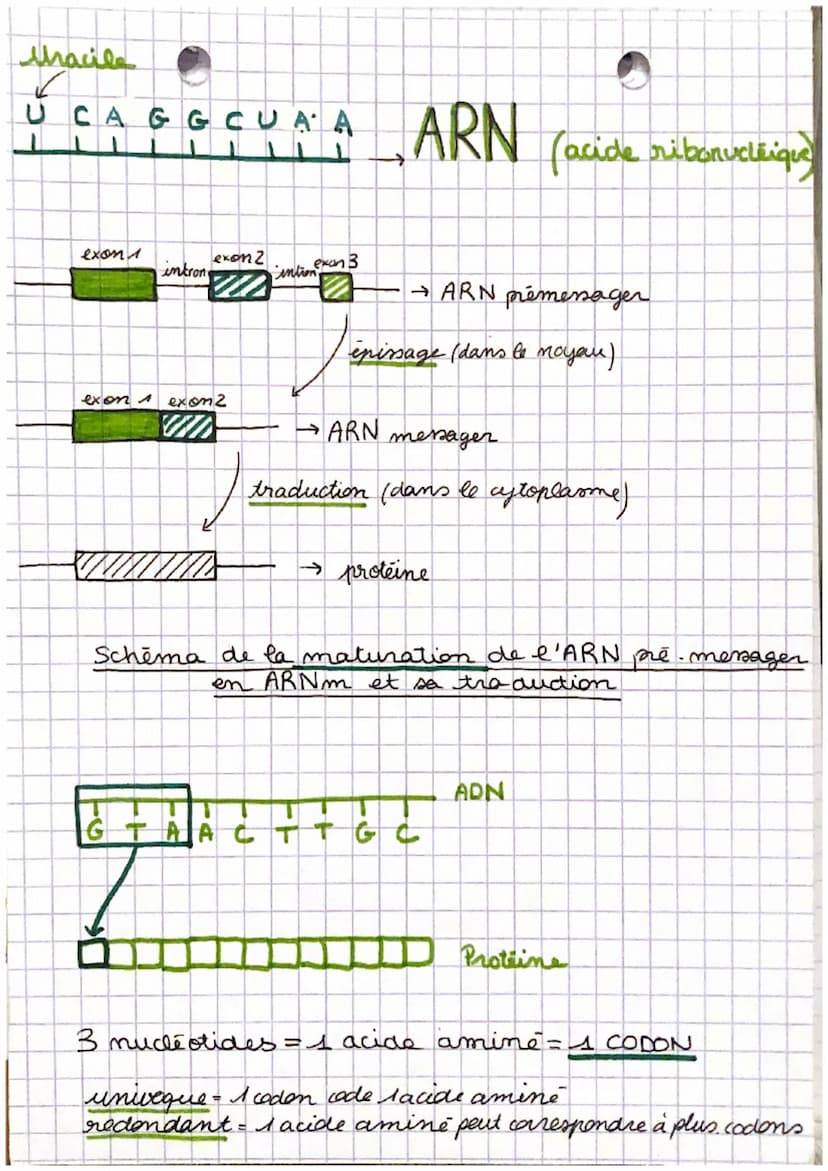 Uracile
U C A G G C U A A
→ ARN (acide ribonucléique)
exon 1 intron exon 2 intron exon 3
→ ARN prémessager
épissage (dans le noyau)
exon 1 exon 2
→ ARN messager
traduction (dans le cytoplasme)
→ protéine
Schéma de la maturation de l'ARN pré-messager
en ARNm et sa traduction
ADN
G T A A C T T G C
Protéine
3 nucléotides = 1 acide aminé = 1 CODON
univoque = 1 codon code 1 acide aminé
redondant = 1 acide aminé peut correspondre à plus. codons